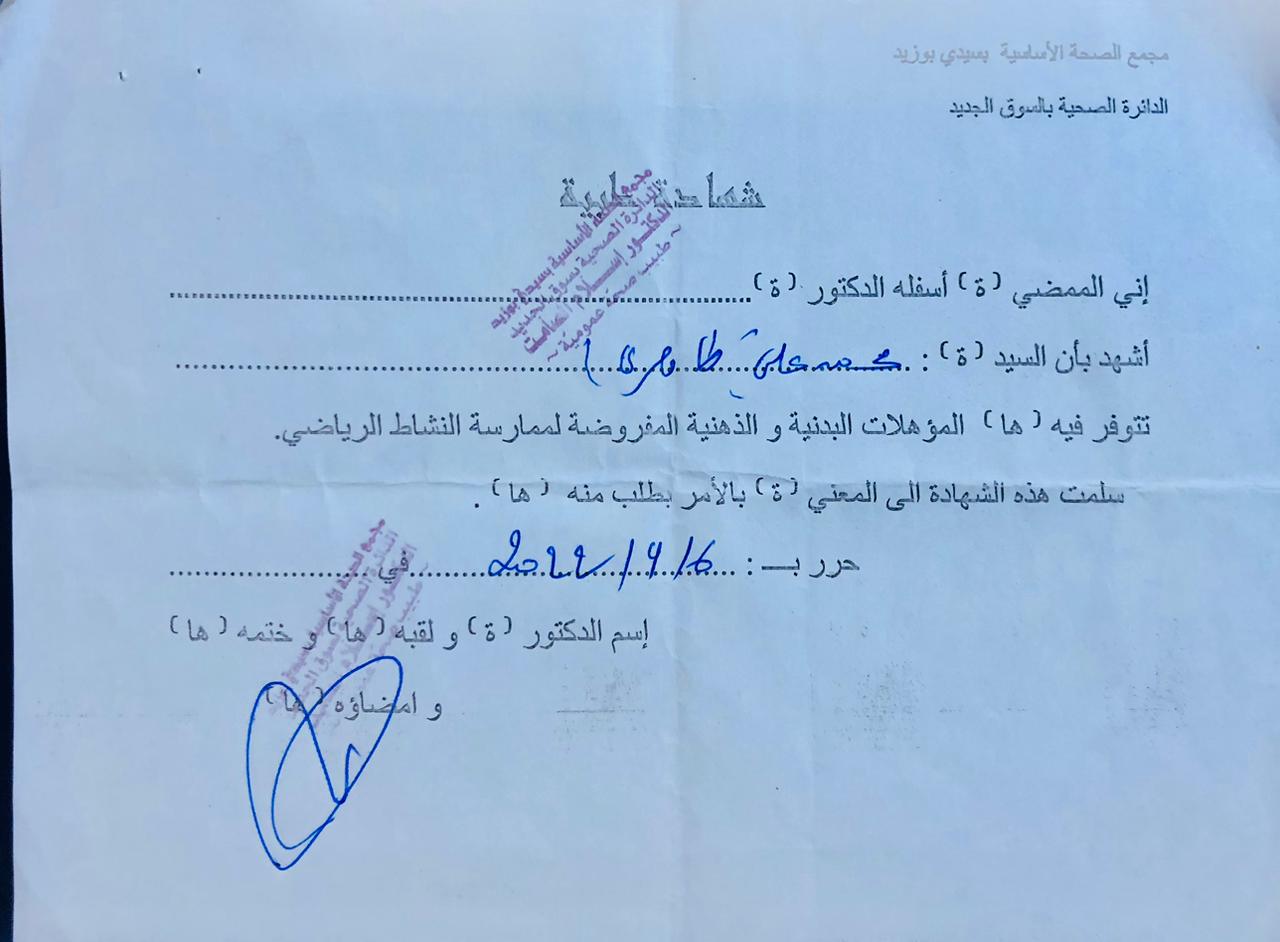 مجمع الصحة الأساسية بسيدي بوزيد
الدائرة الصحية بالسوق الجديد
شهادة طبية
مجمع الصحة الأساسية بسيدي بوزيد
الدائرة الصحية بسوق الجديد
الدكتور إسلام
~ طبيب صحة عمومية ~
إني الممضي (ة) أسفله الدكتور (ة)
أشهد بأن السيد (ة) : محمد علي
تتوفر فيه (ها) المؤهلات البدنية و الذهنية المفروضة لممارسة النشاط الرياضي.
سلمت هذه الشهادة الى المعني (ة) بالأمر بطلب منه (ها) .
حرر بـ : 2022/9/6 في
إسم الدكتور (ة) و لقبه (ها) و ختمه (ها)
و امضاؤه (ها)
مجمع الصحة الأساسية بسيدي بوزيد
الدائرة الصحية بسوق الجديد
الدكتور إسلام